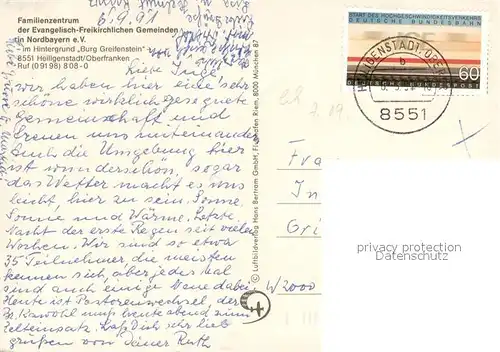 Familienzentrum
der Evangelisch-Freikirchlichen Gemeinden
in Nordbayern e.V.
im Hintergrund „Burg Greifenstein"
8551 Heiligenstadt/Oberfranken
Ruf (09198) 808-0
6.9.91
Liebe Inge,
wir haben hier eine sehr
schöne wirklich gesegnete
Gemeinschaft und
freuen uns miteinander
Auch die Umgebung hier
ist wunderschön, sogar
das Wetter macht es uns
leicht, hier zu sein. Sonne,
Sonne und Wärme. Letzte
Nacht der erste Regen seit vielen
Wochen. Wir sind so etwa
35 Teilnehmer die meisten
kennen sich, aber jedes Mal
sind auch einige Neue dabei,
Heute ist Pastorenwechsel, der
Br. Kawohl muß heute abend zum
Zelteinsatz. Laß Dich sehr lieb
grüßen von Deiner Ruth
© Luftbildverlag Hans Bertram GmbH, Flughafen Riem, 8000 München 87
START DES HOCHGESCHWINDIGKEITSVERKEHRS
DEUTSCHE BUNDESBAHN
60
DEUTSCHE BUNDESPOST
HEILIGENSTADT
b
8551
Fra
In
Gri
W2000
privacy protection
Datenschutz